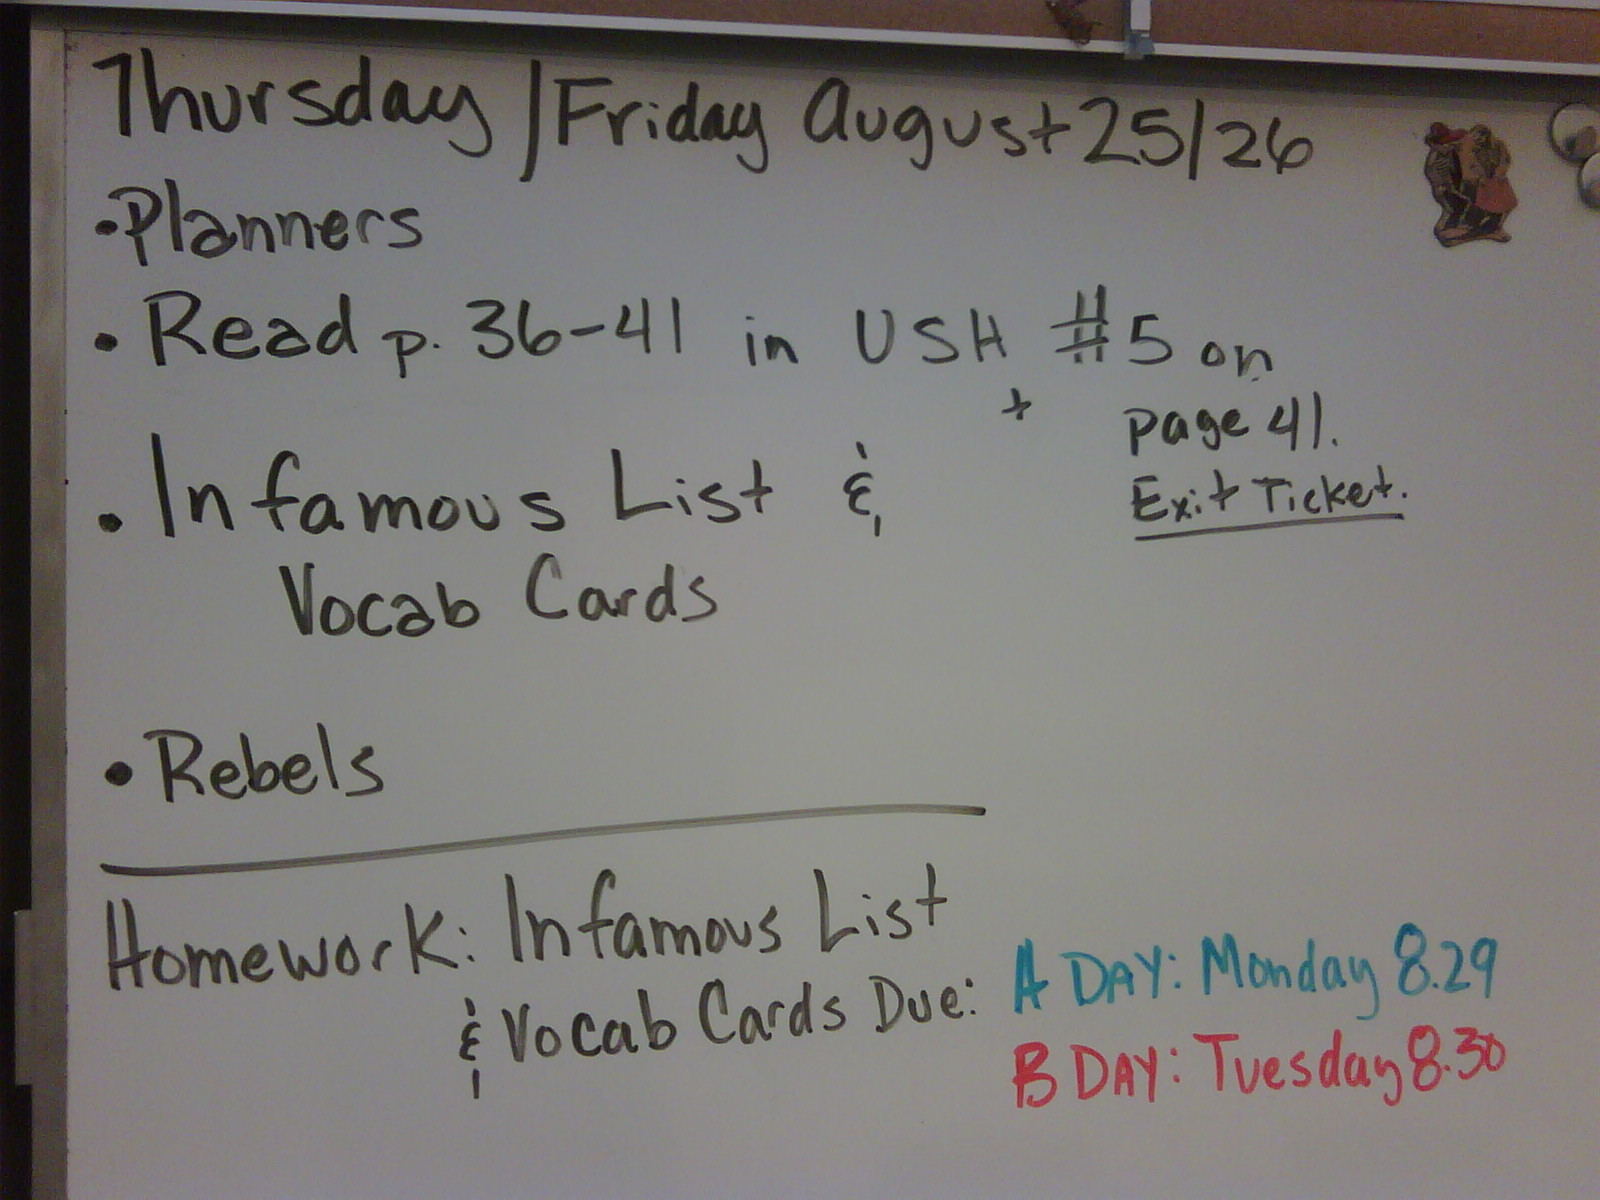 Thursday/Friday August 25/26
• Planners
• Read p. 36-41 in USH #5 on
+ page 41.
Exit Ticket.
• Infamous List &
Vocab Cards
• Rebels
Homework: Infamous List
& Vocab Cards Due:
A DAY: Monday 8.29
B DAY: Tuesday 8.30